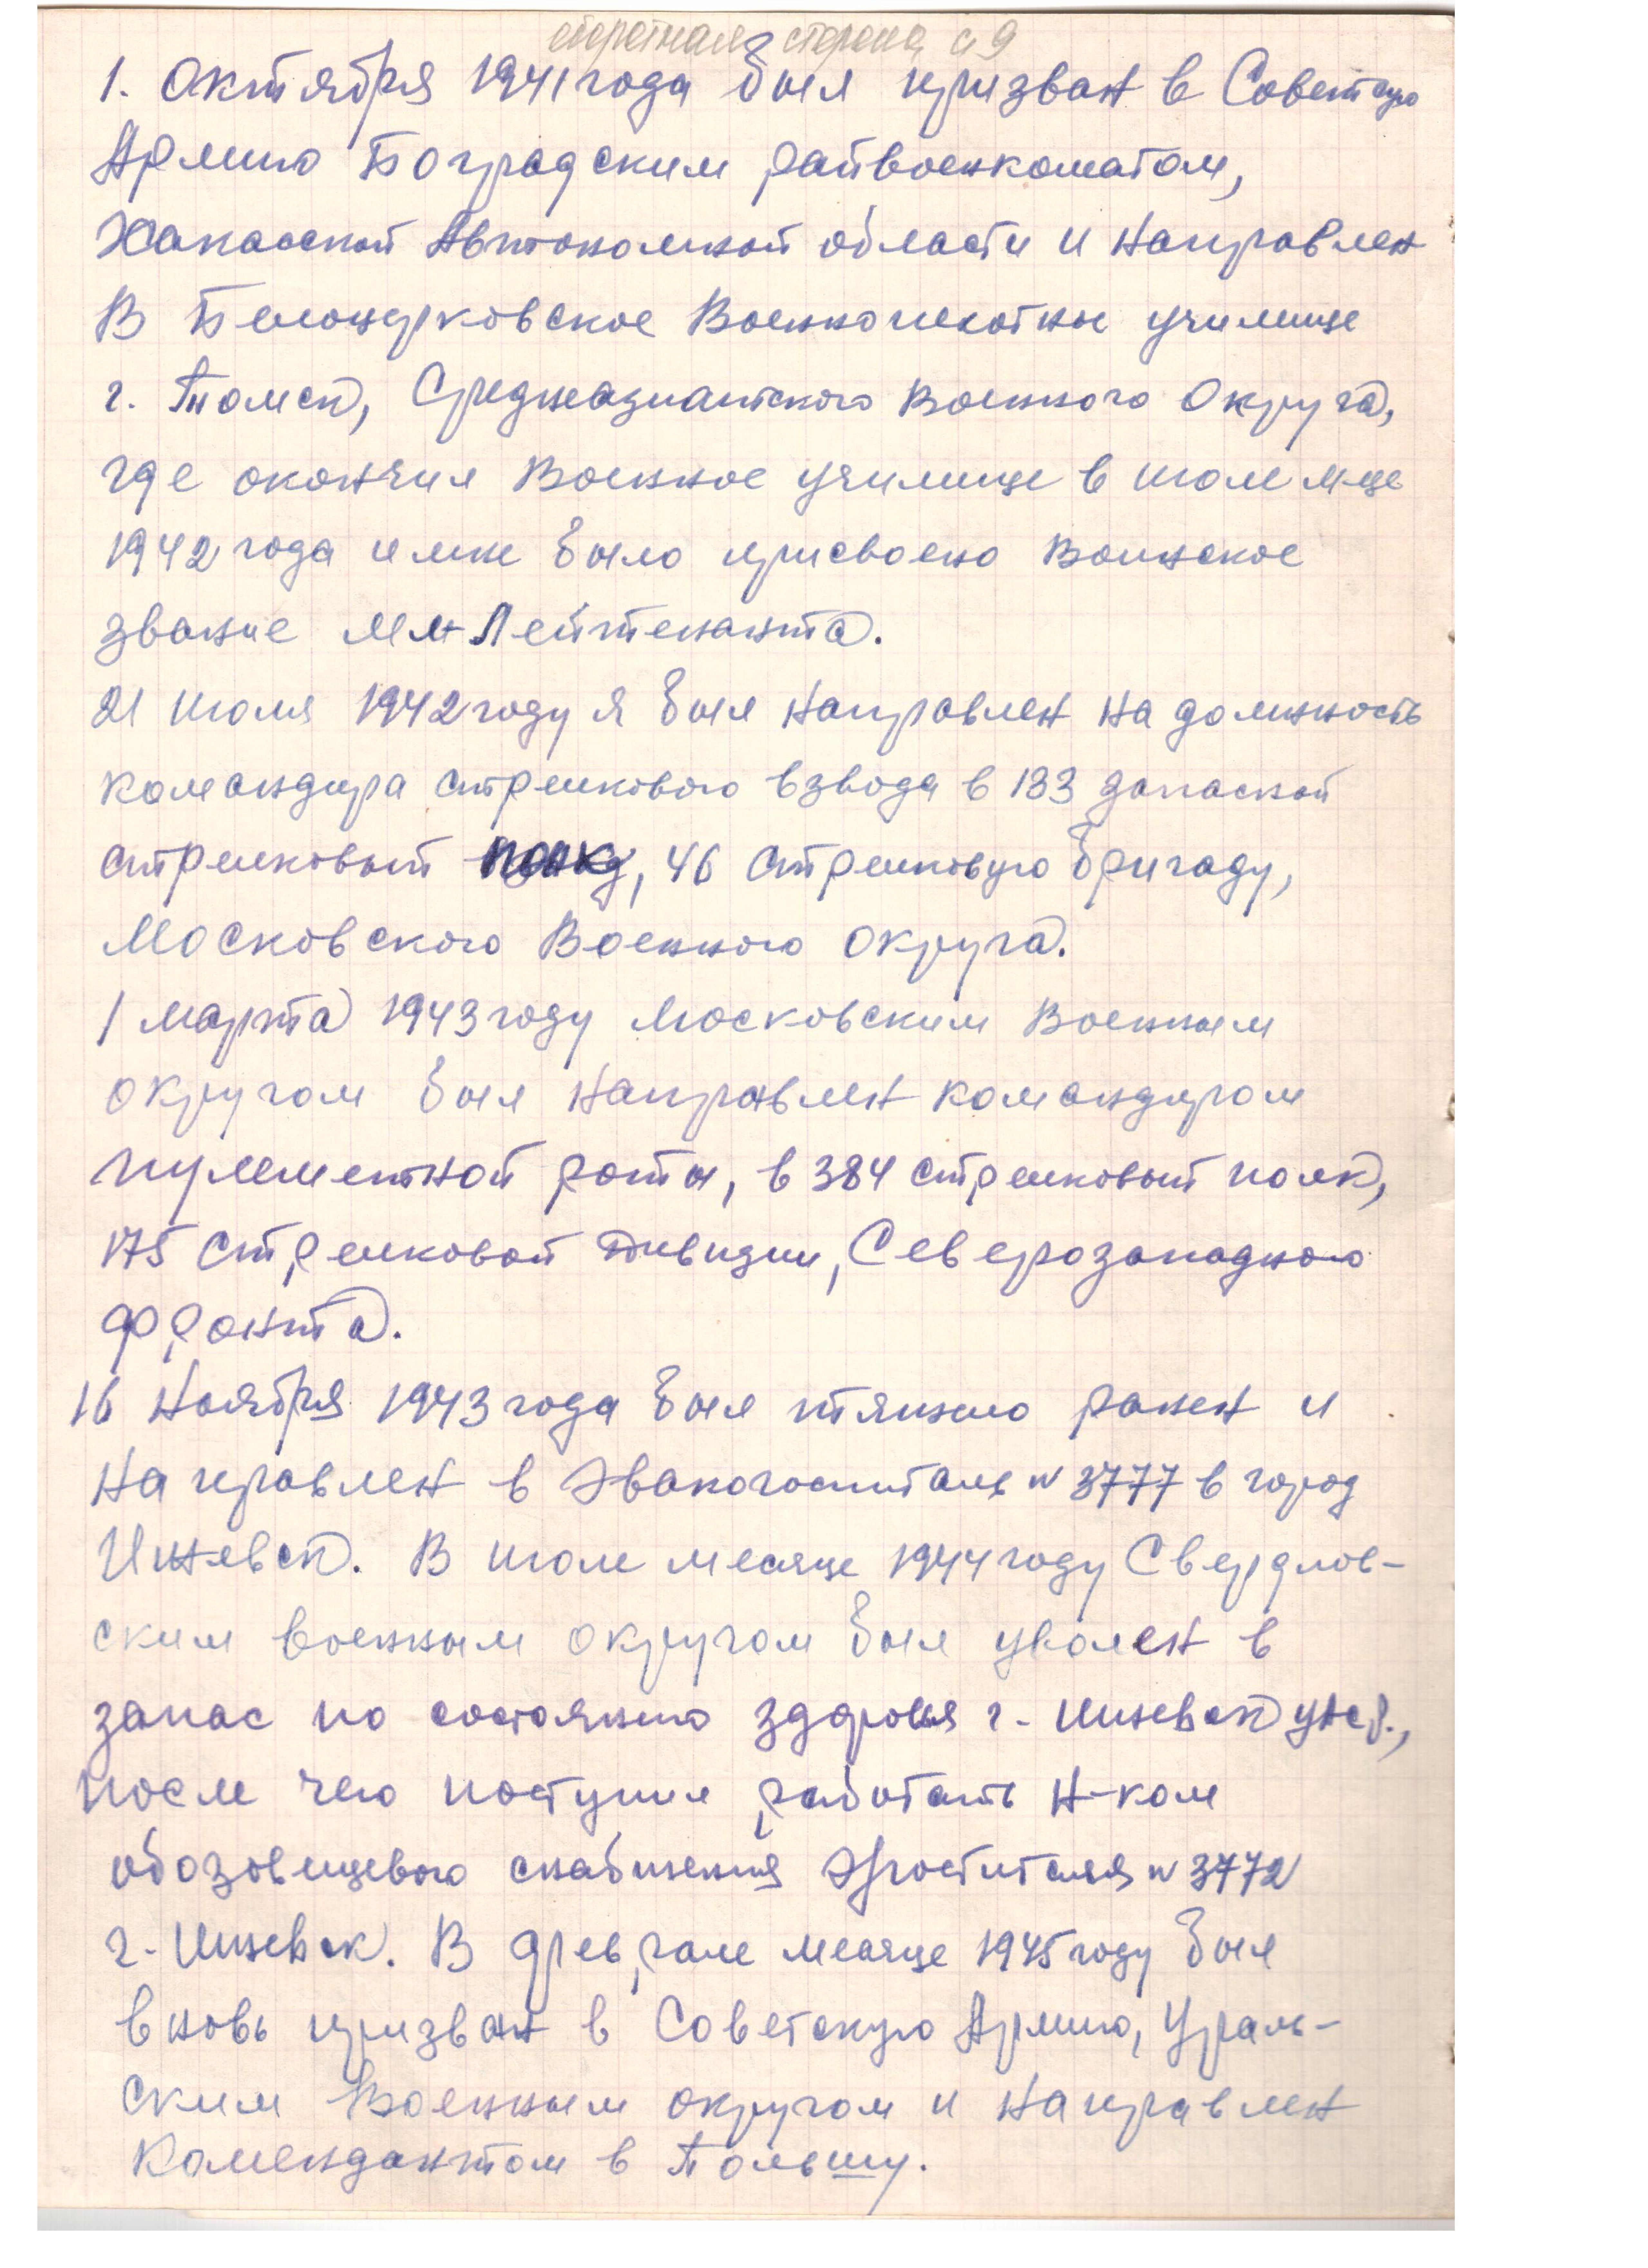 обратная сторона с 9
1. Октября 1941 года был призван в Советскую
Армию Боградским райвоенкоматом,
Хакасской Автономной области и направлен
В Белоцерковское Военнопехотное училище
г. Томск, Среднеазиатского Военного Округа,
где окончил Военное училище в июле м-це
1942 года и мне было присвоено Воинское
звание мл-Лейтенанта.
21 июля 1942 году я был направлен на должность
командира стрелкового взвода в 133 запасной
стрелковый полк, 46 стрелковую бригаду,
Московского Военного округа.
1 марта 1943 году Московским Военным
округом был направлен командиром
пулеметной роты, в 384 стрелковый полк,
175 стрелковой дивизии, Северозападного
фронта.
16 Ноября 1943 года был тяжело ранен и
направлен в Эвакогоспиталь N 3777 в город
Ижевск. В июле месяце 1944 году Свердлов-
ским военным округом был уволен в
запас по состоянию здоровья г. Ижевск
после чего поступил работать Н-ком
обозовещевого снабжения N 3772
г. Ижевск. В феврале месяце 1945 году был
вновь призван в Советскую Армию, Ураль-
ским Военным округом и направлен
Комендантом в Польшу.